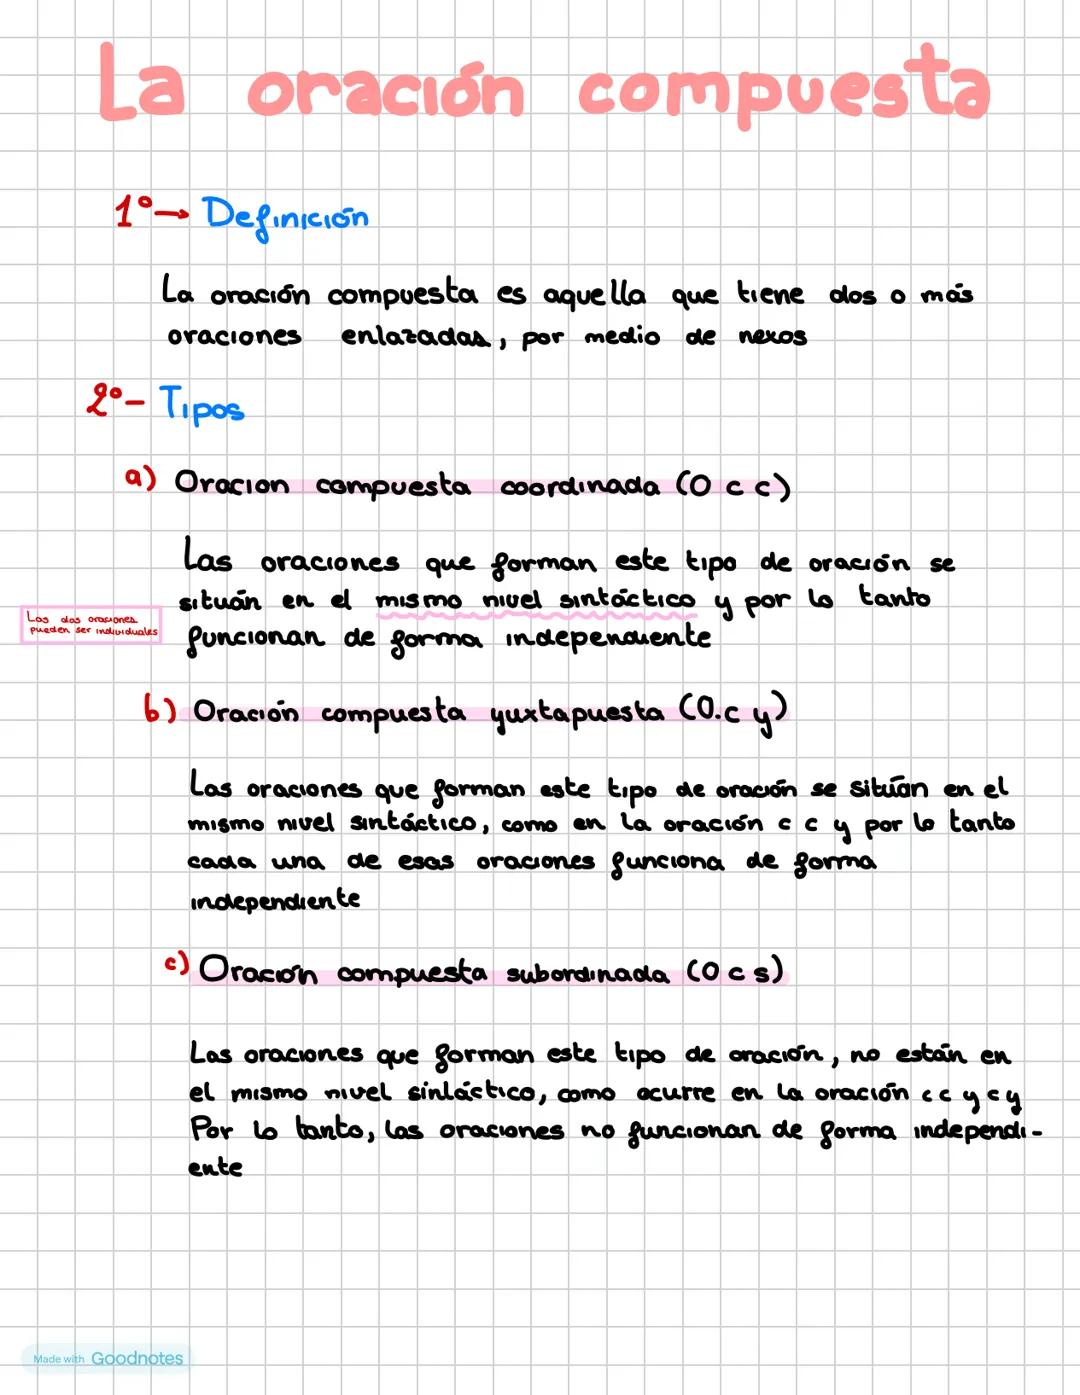 La oración compuesta
1º→ Definición
La oración compuesta es aquella que tiene dos o más
oraciones enlazadas, por medio de nexos
2º- Tipos
a) Oracion compuesta coordinada (O c c)
Las oraciones que forman este tipo de oración se
situán en el mismo nivel sintáctico y por lo tanto
funcionan de forma independiente
Las dos oraciones
pueden ser individuales
b) Oración compuesta yuxtapuesta (O.c y)
Las oraciones que forman este tipo de oración se sitúan en el
mismo nivel sintáctico, como en la oración c c y por lo tanto
cada una de esas oraciones funciona de forma
independiente
c) Oración compuesta subordinada (O c s)
Las oraciones que forman este tipo de oración, no están en
el mismo nivel sintáctico, como ocurre en la oración c c y c y
Por lo tanto, las oraciones no funcionan de forma independi-
ente
Made with Goodnotes